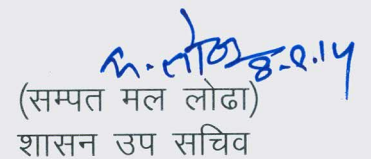 8.9.14
(सम्पत मल लोढा)
शासन उप सचिव